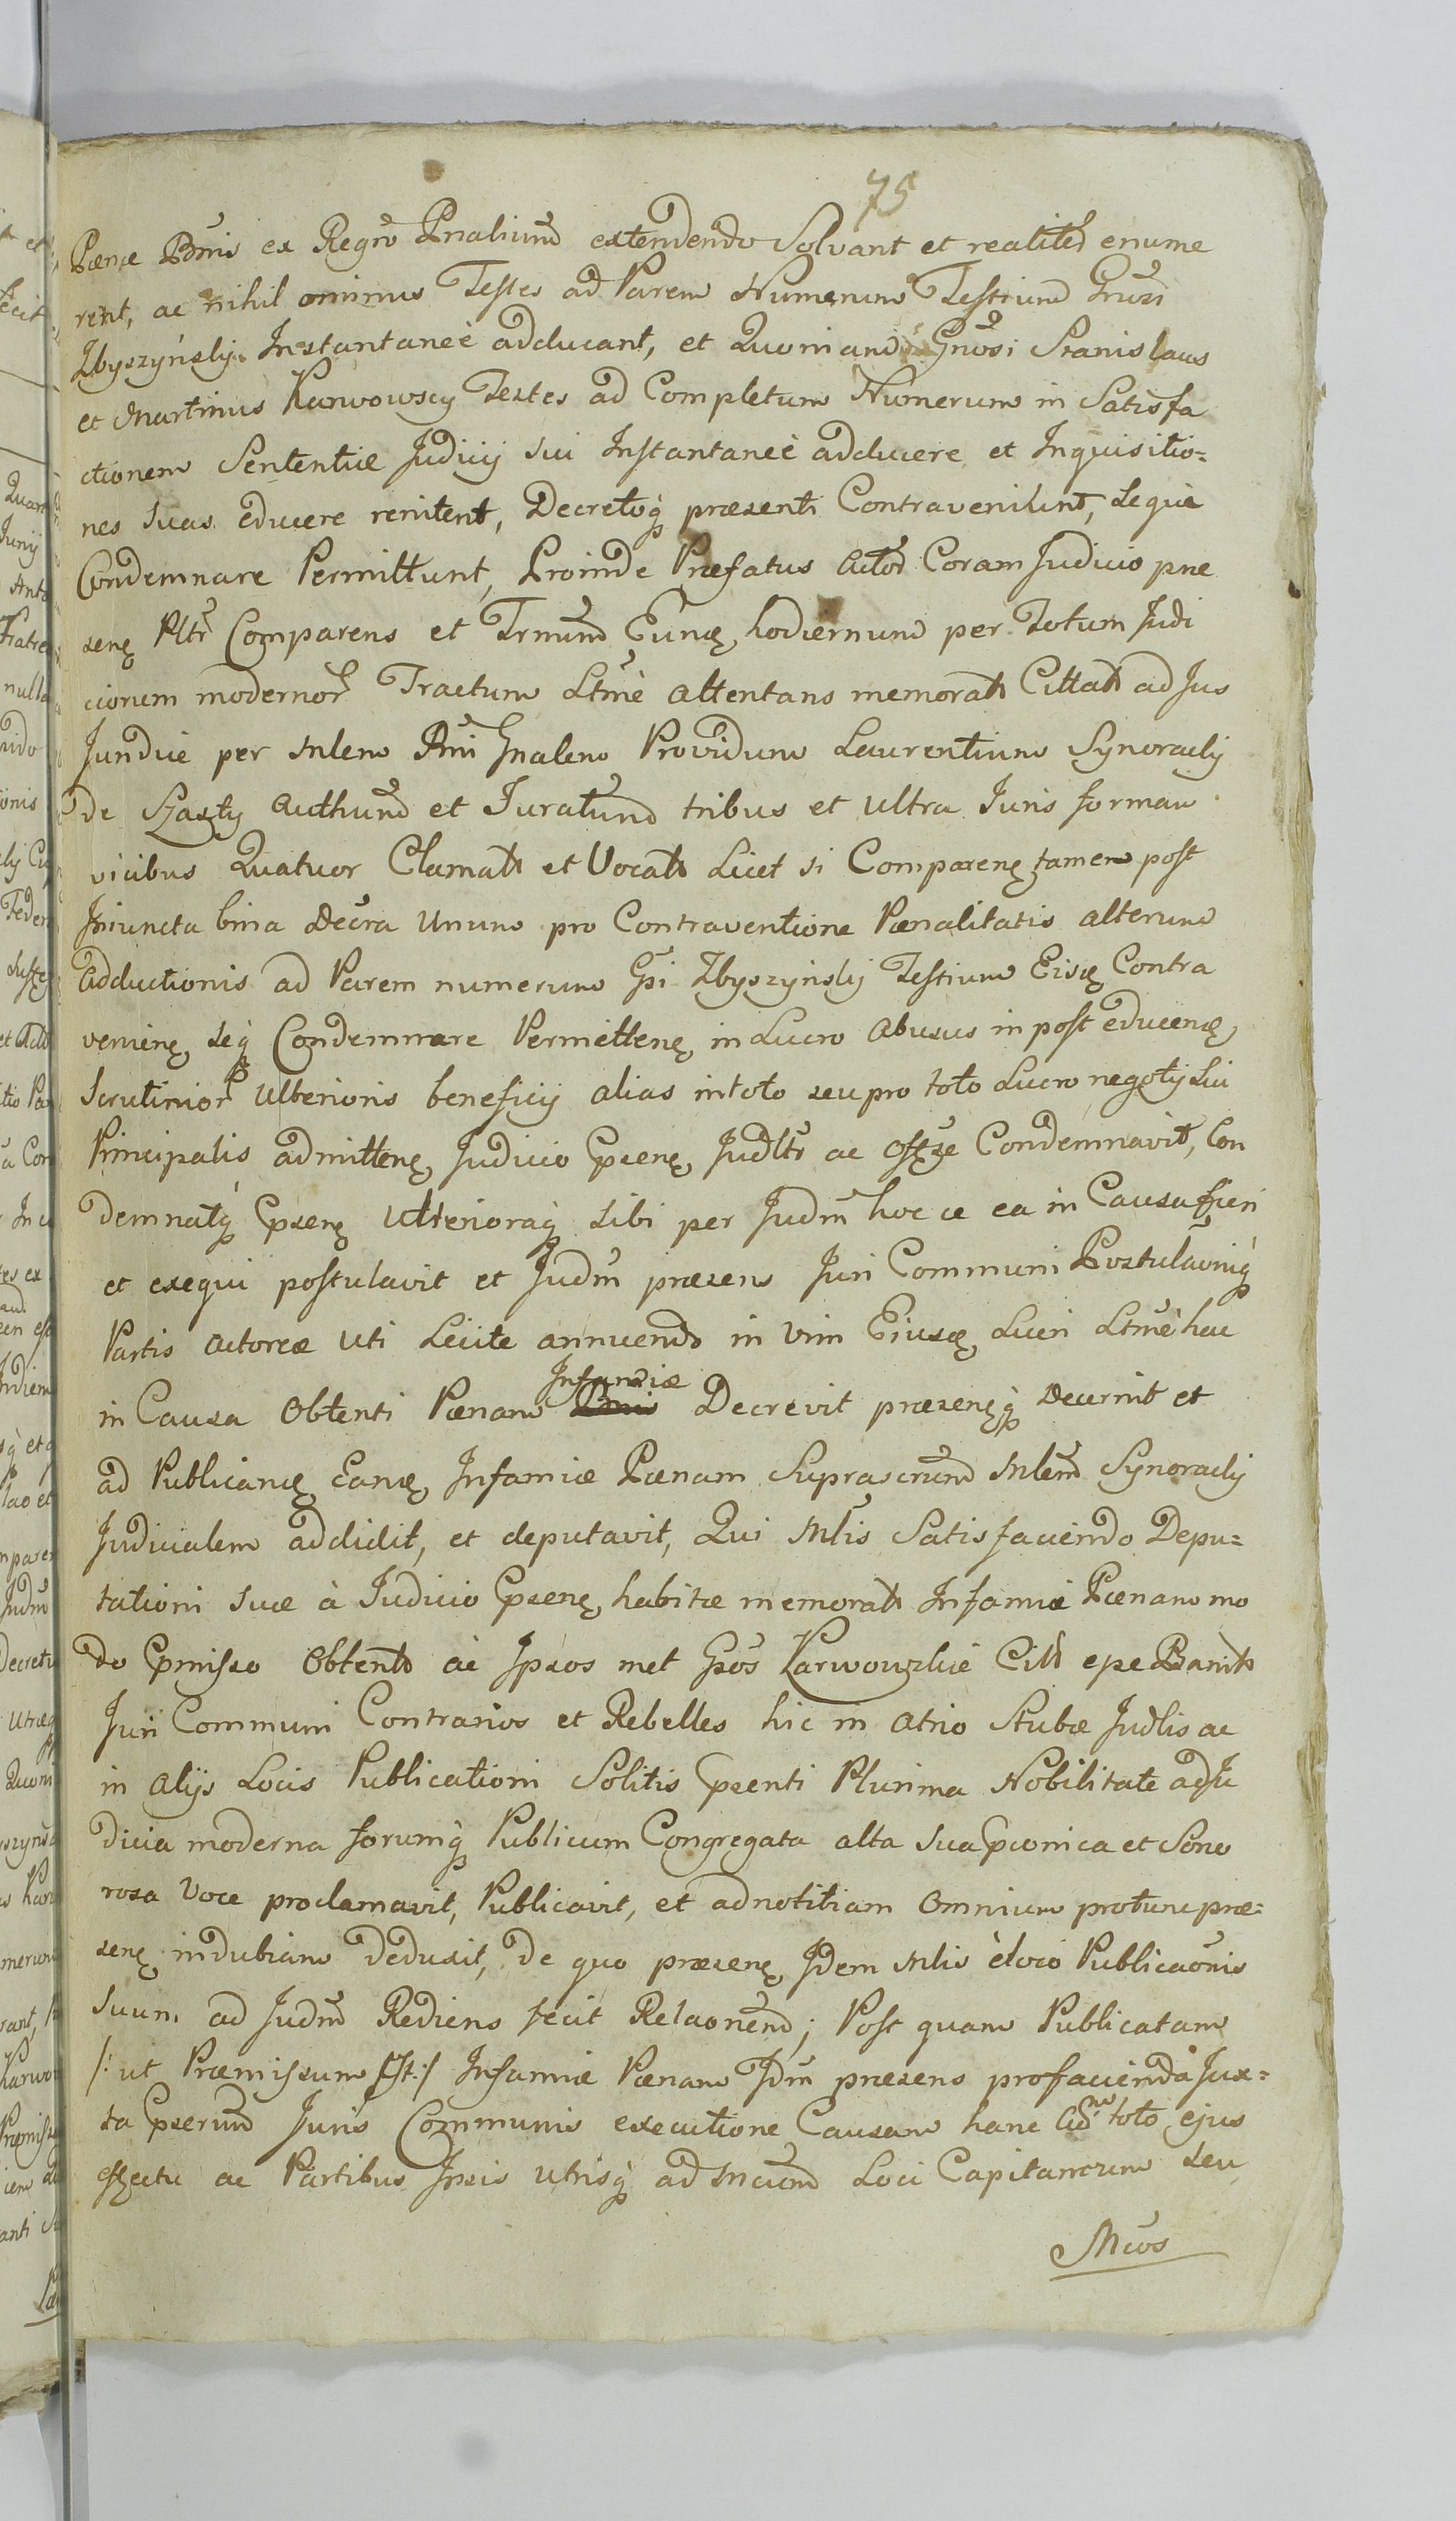 75
Pœnæ Bnis ex Regno Pnalium extendendo Solvant et realiter enume
rent, ac nihil ominus Testes ad Parem Numerum Testium Gnosi
Zbyszyński Instantaneè adducant, et Quoniam Gnosi Stanislaus
et Martinus Karwowscy Testes ad Completum Numerum in Satisfa
ctionem Sententiæ Judicij sui Instantaneè adducere et Inquisitio=
nes suas educere renitent, Decretoq præsenti Contraveniunt, seque
Condemnare Permittunt, Proinde Præfatus Actor Coram Judicio præ
senę Pltr Comparens et Trnum Eunę hodiernum per Totum Judi
ciorum modernor Tractum Ltmè attentans memorat Cittat ad Jus
Jundie per Mlem Rni Gnalem Providum Laurentium Synoracky
de Szasty Authum et Juratum tribus et ultra Juris formam
vicibus Quatuor Clamat et Vocat Licet si Comparenę tamen post
Iniuncta bina Decra Unum pro Contraventione Pœnalitatis alterum
adductionis ad Parem numerum Gsi Zbyszyński Testium Eisę Contra
venienę seq Condemnare Permittenę in Lucro abusus in post educenę
Scrutinior Ulterioris beneficij alias in toto seu pro toto Lucro negotij sui
Principalis admittenę Judicio Cpsenę Judltr ac Condemnavit, Con
demnatq Cpsenę Ulterioraq sibi per Judm hocce ea in Causa fieri
et exequi postulavit et Judm præsens Juri Communi Postulaoniq
Partis actoreæ uti Licite annuendo in vim Eiusę Lucri Ltmè hac
in Causa Obtenti Pœnam Infamiæ Decrevit præsenęq Decernit et
ad Publicandę Eandę Infamiæ Pœnam Suprascrum Mlem Synoracky
Judicialem addidit, et deputavit, Qui Mlis Satisfaciendo Depu=
tationi suæ à Judicio Cpsenę habitæ memorat Infamiæ Pœnam mo
do Cpmisso Obtent ac Ipsos met Gsos Karwowskie Citt Banit
Juri Communi Contrarios et Rebelles hic in atrio Stubæ Judlis ac
in alijs Locis Publicationi Solitis Cpsenti Plurima Nobilitate ad Ju
dicia moderna forumq Publicum Congregata alta sua et Sono
rosa Voce proclamavit, Publicavit, et ad notitiam Omnium pro tunc præ=
senę indubiam Deduxit, De quo præsenę Idem Mlis è loco Publicaonis
suum ad Judm Rediens fecit Relaonem; Post quam Publicatam
/: ut Præmissum Est :/ Infamiæ Pœnam Jdm præsens pro facienda Jux=
ta Cpserum Juris Communis executione Causam hanc toto ejus
effectu ac Partibus Ipsis utrisq ad Mcum Loci Capitaneum seu
Mcos